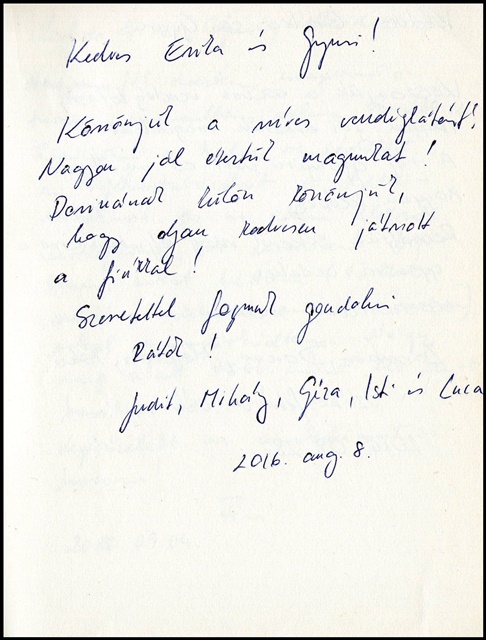 Kedves Erika és Gyuri!
Köszönjük a szíves vendéglátást!
Nagyon jól éreztük magunkat!
Dorinának külön köszönjük,
hogy olyan kedvesen játszott
a fiúkkal!
Szeretettel fogunk gondolni
Rátok!
Judit, Mihály, Géza, Isti és Luca
2016. aug. 8.